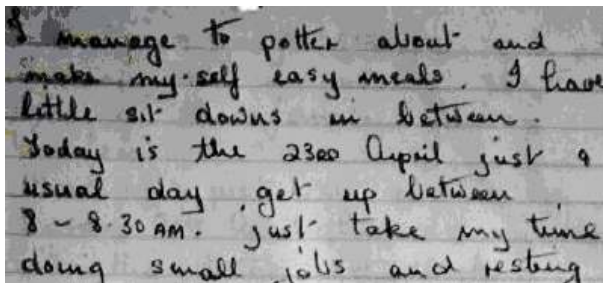 I manage to potter about and
make my-self easy meals. I have
little sit downs in between.
Today is the 23rd April just a
usual day, get up between
8 - 8.30 AM. just take my time
doing small jobs and resting